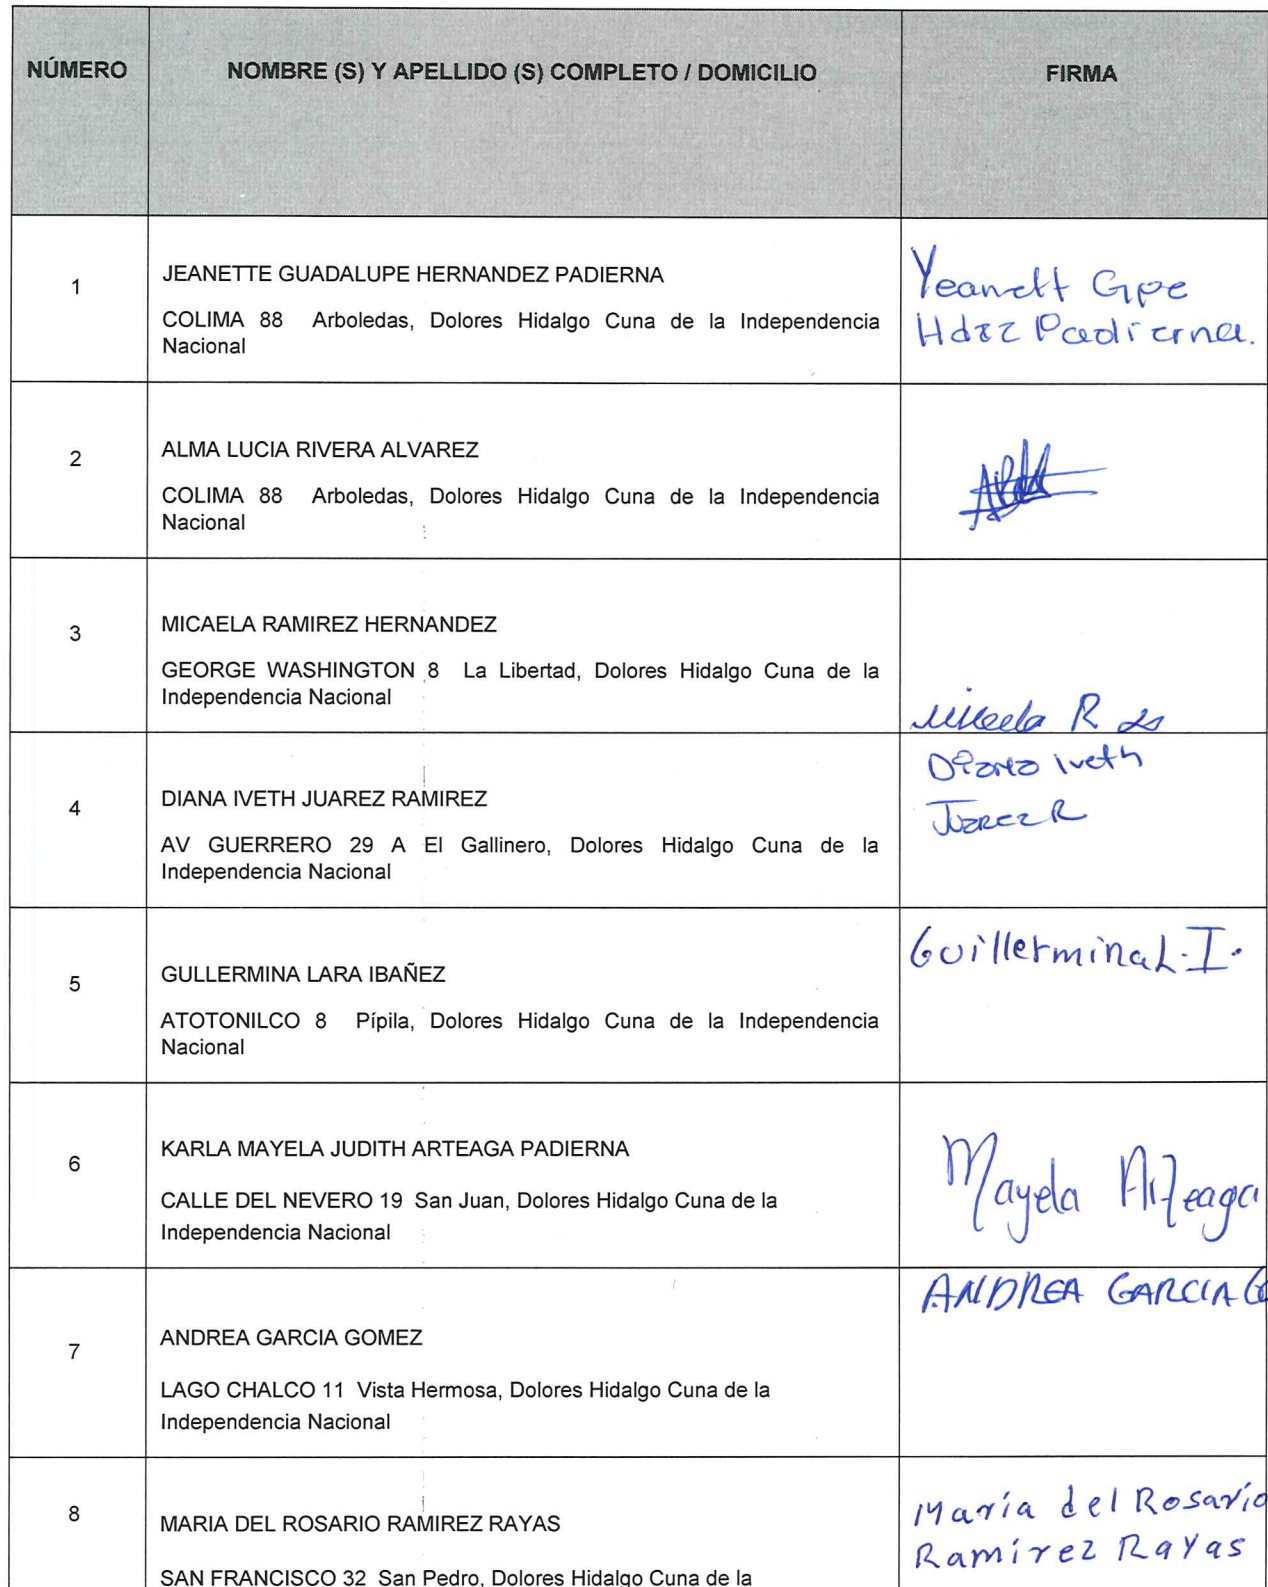 NÚMERO
NOMBRE (S) Y APELLIDO (S) COMPLETO / DOMICILIO
FIRMA
1
JEANETTE GUADALUPE HERNANDEZ PADIERNA
COLIMA 88 Arboledas, Dolores Hidalgo Cuna de la Independencia
Nacional
Yeanett Gpe
Hdez Padierna.
2
ALMA LUCIA RIVERA ALVAREZ
COLIMA 88 Arboledas, Dolores Hidalgo Cuna de la Independencia
Nacional
3
MICAELA RAMIREZ HERNANDEZ
GEORGE WASHINGTON 8 La Libertad, Dolores Hidalgo Cuna de la
Independencia Nacional
Micaela R
4
DIANA IVETH JUAREZ RAMIREZ
AV GUERRERO 29 A El Gallinero, Dolores Hidalgo Cuna de la
Independencia Nacional
Diana Iveth
Juarez R
5
GULLERMINA LARA IBAÑEZ
ATOTONILCO 8 Pípila, Dolores Hidalgo Cuna de la Independencia
Nacional
Guillermina L.I.
6
KARLA MAYELA JUDITH ARTEAGA PADIERNA
CALLE DEL NEVERO 19 San Juan, Dolores Hidalgo Cuna de la
Independencia Nacional
Mayela Arteaga
7
ANDREA GARCIA GOMEZ
LAGO CHALCO 11 Vista Hermosa, Dolores Hidalgo Cuna de la
Independencia Nacional
ANDREA GARCIA Go
8
MARIA DEL ROSARIO RAMIREZ RAYAS
SAN FRANCISCO 32 San Pedro, Dolores Hidalgo Cuna de la
María del Rosario
Ramírez Rayas